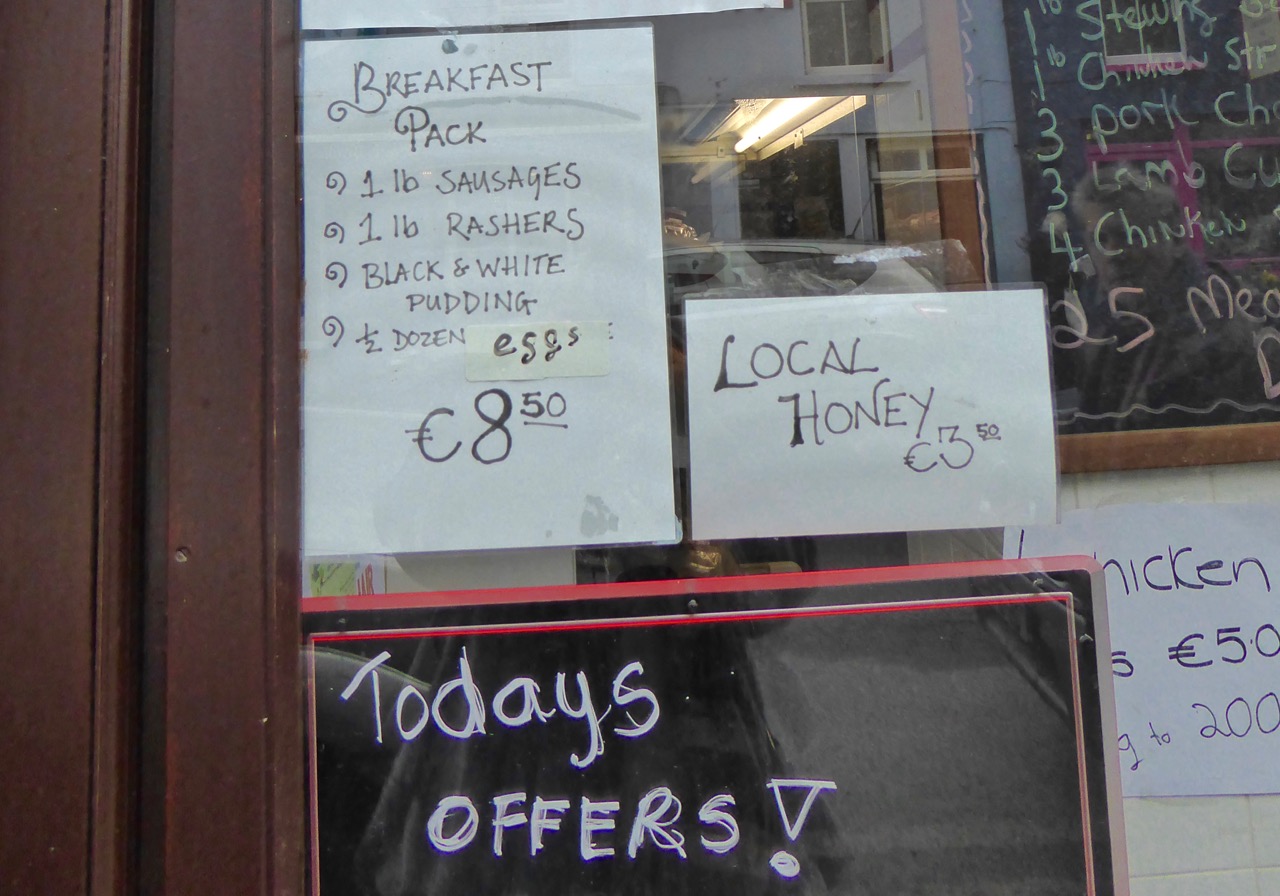 BREAKFAST
PACK
1 lb SAUSAGES
1 lb RASHERS
BLACK & WHITE
PUDDING
½ DOZEN eggs
€8 50
LOCAL
HONEY
€3 50
1 lb Stewing
1 lb Chicken
3 pork
3 Lamb
4 Chinken
25
hicken
s €5.0
g to 200
Todays
OFFERS!